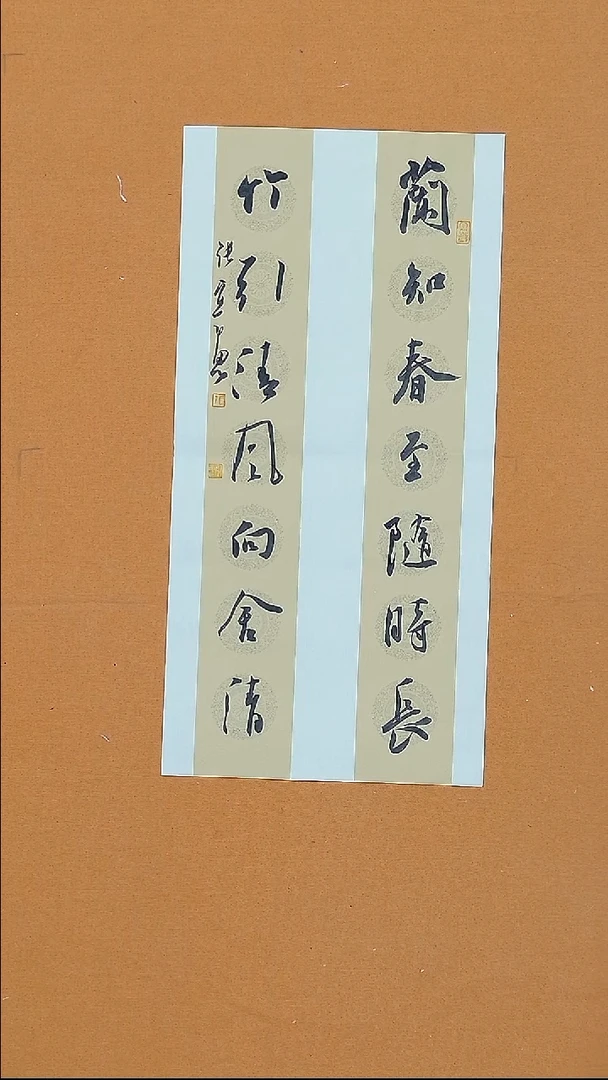 蘭知春至隨時長
竹引清風向舍清